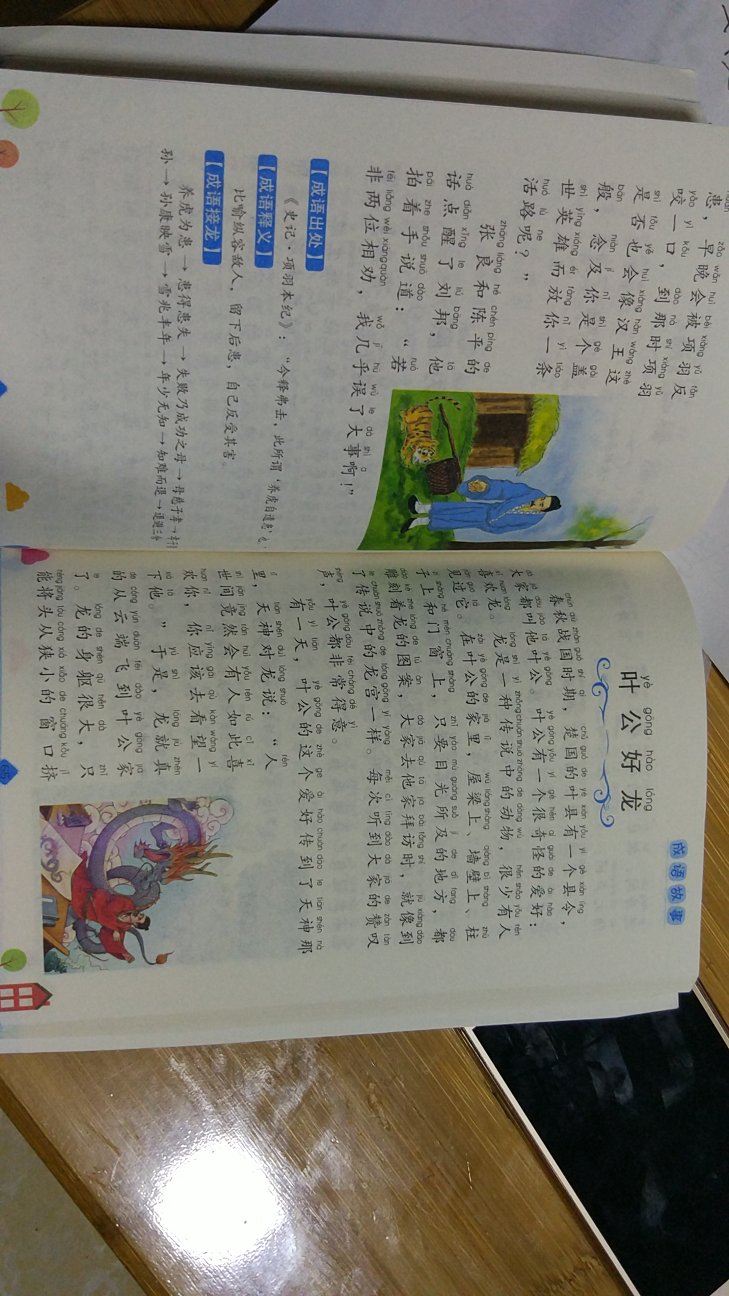 患，早晚会被项羽反
咬一口，到那时项羽
是否也会像汉王这
般，念及你是个盖
世英雄而放你一条
活路呢？”
张良和陈平的
话点醒了刘邦，他
拍着手说道：“若
非两位相劝，我几乎误了大事啊！”
【成语出处】
《史记·项羽本纪》：“今释弗击，此所谓‘养虎自遗患’也。
【成语释义】
比喻纵容敌人，留下后患，自己反受其害。
【成语接龙】
养虎为患→患得患失→失败乃成功之母→母慈子孝→孝子
孙→孙康映雪→雪兆丰年→年少无知→知难而退→退避三舍
成语故事
yè gōng hào lóng
叶公好龙
春秋战国时期，楚国的叶县有一个县令，
大家都叫他叶公。叶公有一个很奇怪的爱好：
喜欢龙。龙是一种传说中的动物，很少有人
见过它。在叶公的家里，屋梁上、墙壁上、柱
子上和门窗上，只要目光所及的地方，都
雕刻着龙的图案，大家去他家拜访时，就像到
了传说中的龙宫一样。每次听到大家的赞叹
声，叶公都非常得意。
有一天，叶公的这个爱好传到了天神那
里，天神对龙说：“人
世间竟然会有人如此喜
欢你，你应该去看望一
下他。”于是，龙就真
的从云端飞到叶公家
了。龙的身躯很大，只
能将头从狭小的窗口挤